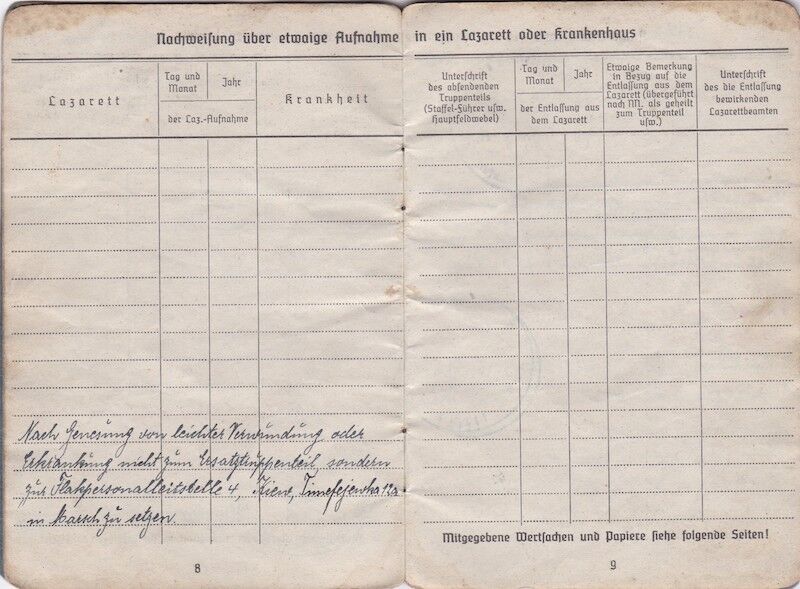 Nachweisung über etwaige Aufnahme in ein Lazarett oder Krankenhaus
Lazarett
Tag und
Monat
Jahr
der Laz.-Aufnahme
Krankheit
Nach Genesung von leichter Verwundung oder
Erkrankung nicht zum Ersatztruppenteil, sondern
zur Flakpersonalleitstelle 4, Kiew, Timofejewka 12a
in Marsch zu setzen.
8
Unterschrift
des absendenden
Truppenteils
(Staffel-Führer usw.
Hauptfeldwebel)
Tag und
Monat
Jahr
der Entlassung aus
dem Lazarett
Etwaige Bemerkung
in Bezug auf die
Entlassung aus dem
Lazarett (übergeführt
nach NN. als geheilt
zum Truppenteil
usw.)
Unterschrift
des die Entlassung
bewirkenden
Lazarettbeamten
Mitgegebene Wertsachen und Papiere siehe folgende Seiten!
9